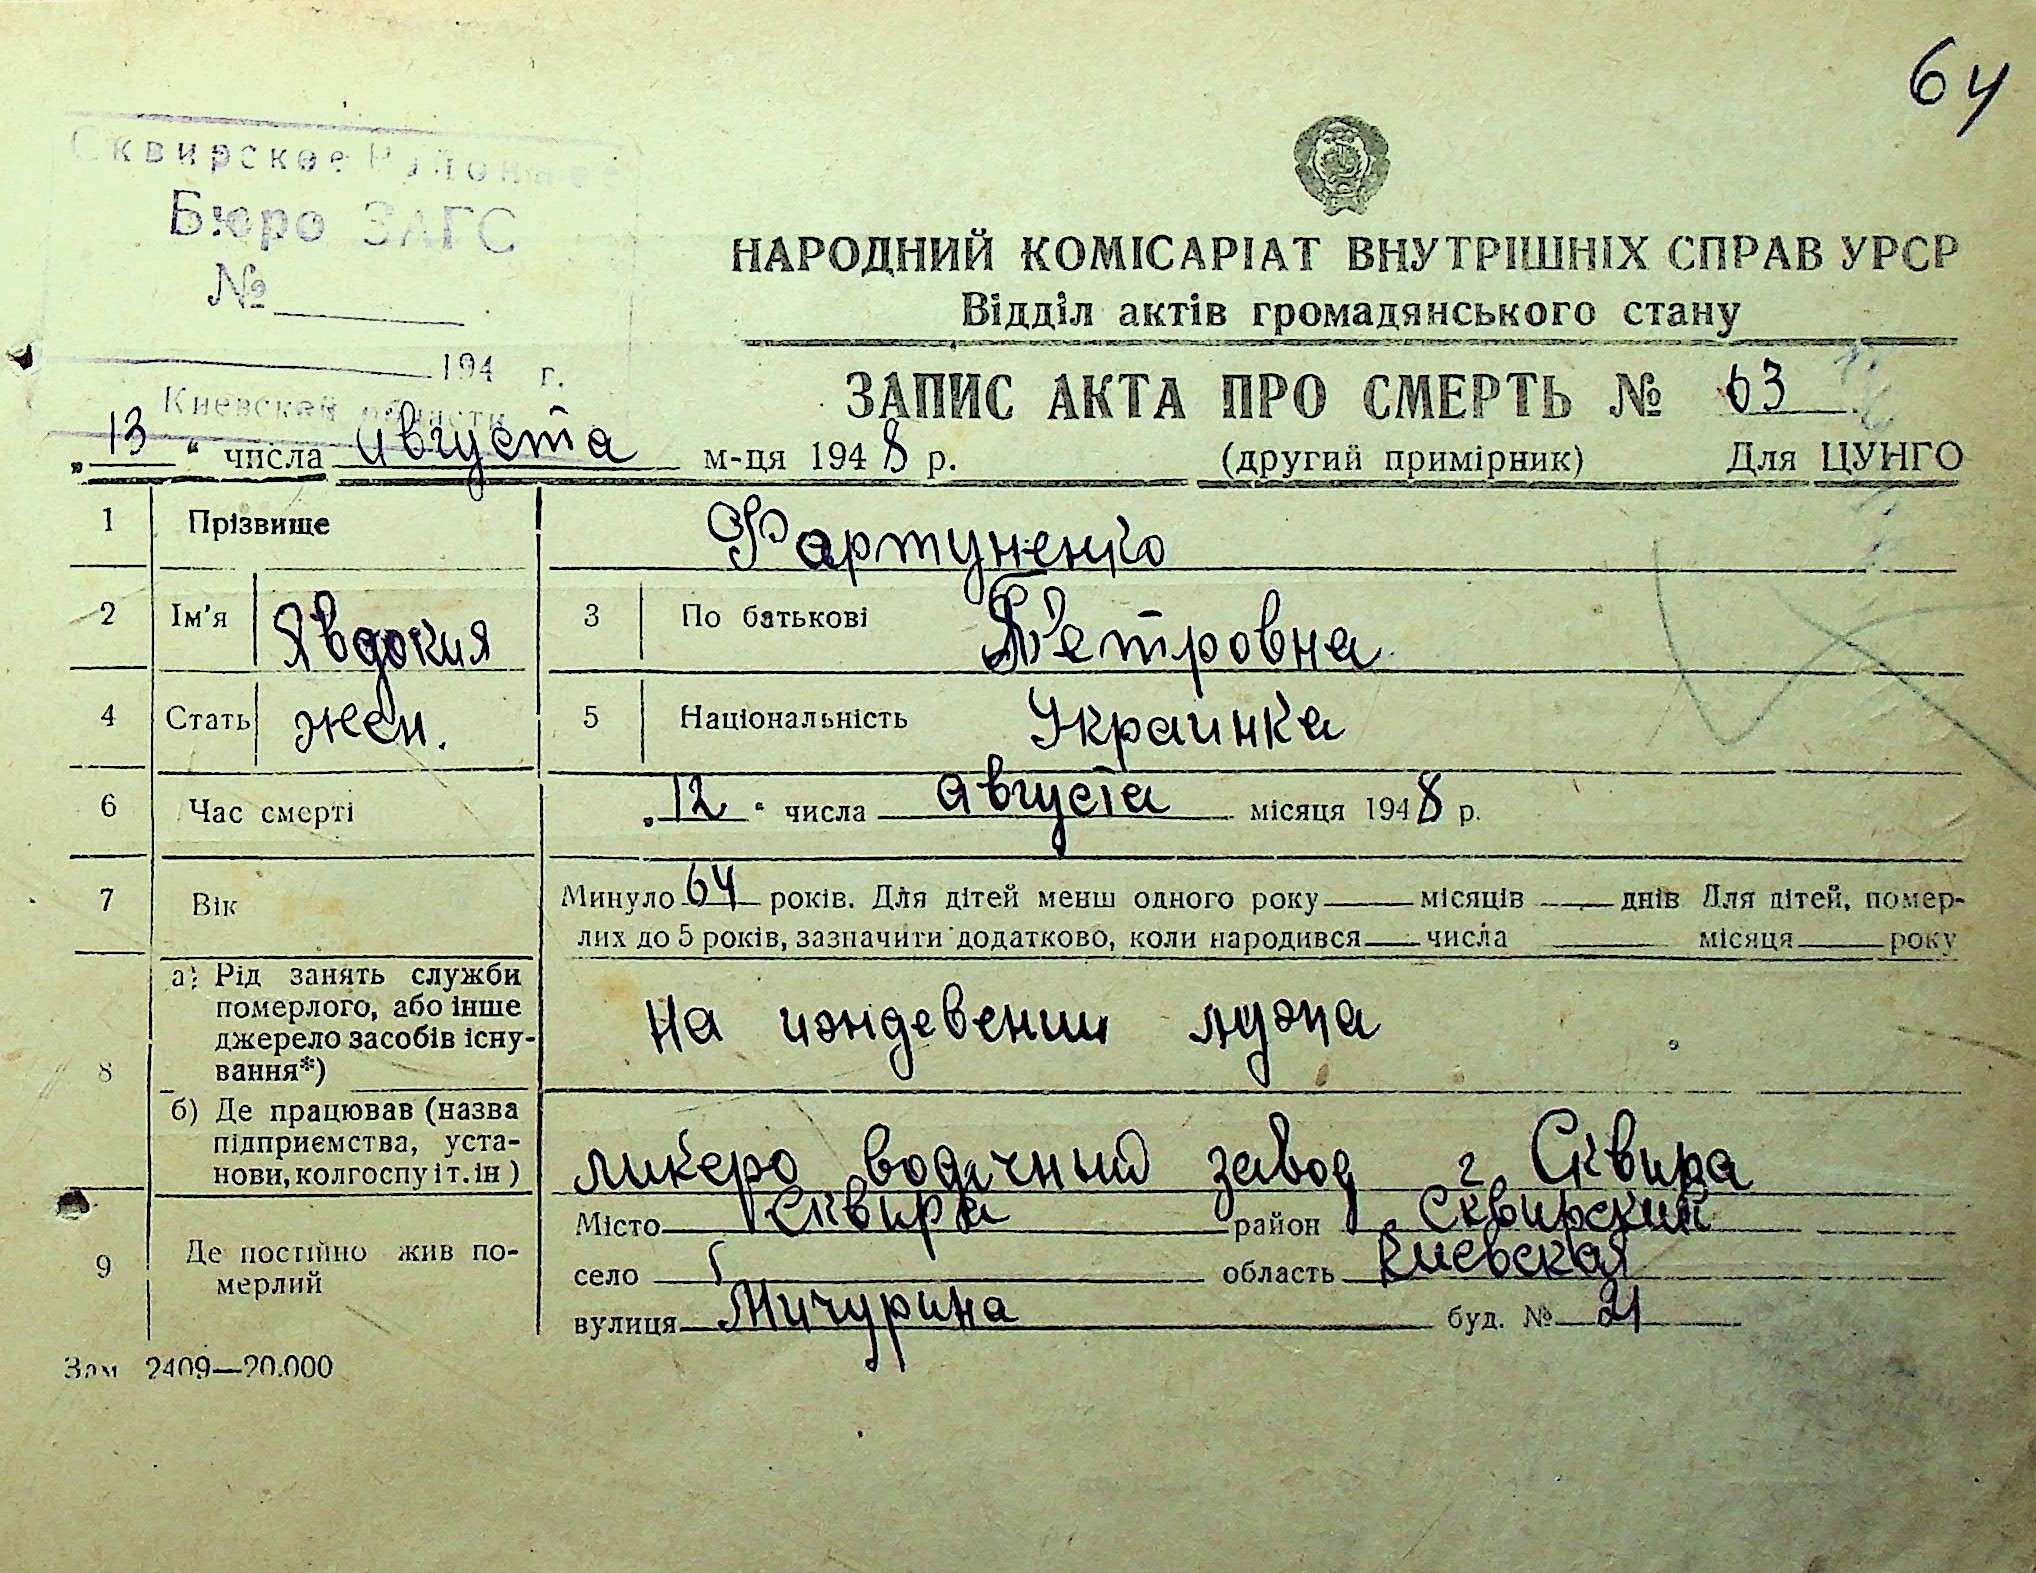 64
Сквирское Районное
Бюро ЗАГС
№
194 г.
Киевской области
НАРОДНИЙ КОМІСАРІАТ ВНУТРІШНІХ СПРАВ УРСР
Відділ актів громадянського стану
ЗАПИС АКТА ПРО СМЕРТЬ № 63
„13“ числа августа м-ця 1948 р. (другий примірник) Для ЦУНГО
1 Прізвище Фартуненко
2 Ім'я Явдокия 3 По батькові Петровна
4 Стать жен. 5 Національність Украинка
6 Час смерті „12“ числа августа місяця 1948 р.
7 Вік Минуло 64 років. Для дітей менш одного року місяців днів Для дітей, помер-
лих до 5 років, зазначити додатково, коли народився числа місяця року
8 а) Рід занять служби
померлого, або інше
джерело засобів існу-
вання*)
На иждевении мужа
б) Де працював (назва
підприємства, уста-
нови, колгоспу і т. ін)
ликеро водочный завод г Сквира
9 Де постійно жив по-
мерлий
Місто Сквира район Сквирский
село область Киевская
вулиця Мичурина буд. № 21
Зам 2409—20.000